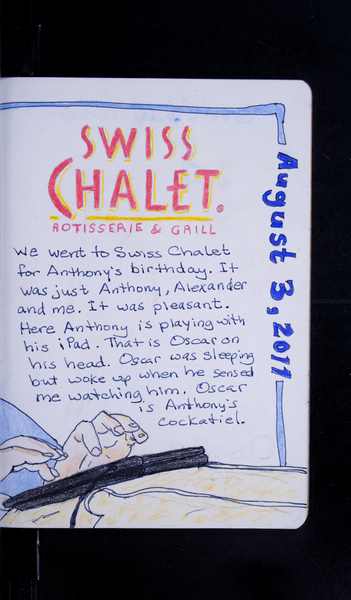 SWISS
CHALET.
ROTISSERIE & GRILL
We went to Swiss Chalet
for Anthony's birthday. It
was just Anthony, Alexander
and me. It was pleasant.
Here Anthony is playing with
his iPad. That is Oscar on
his head. Oscar was sleeping
but woke up when he sensed
me watching him. Oscar
is Anthony's
cockatiel.
August 3, 2011